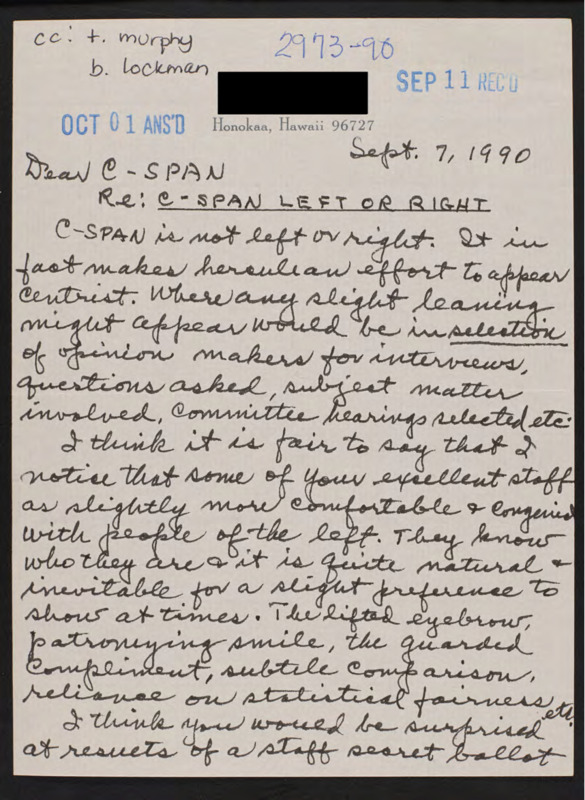 cc: t. murphy
b. lockman
2973-90
SEP 11 REC'D
OCT 01 ANS'D
Honokaa, Hawaii 96727
Sept. 7, 1990
Dear C-SPAN
Re: C-SPAN LEFT OR RIGHT
C-SPAN is not left or right. It in
fact makes herculean effort to appear
centrist. Where any slight leaning
might appear would be in selection
of opinion makers for interviews,
questions asked, subject matter
involved, committee hearings selected etc.
I think it is fair to say that I
notice that some of your excellent staff
as slightly more comfortable & congenial
with people of the left. They know
who they are & it is quite natural &
inevitable for a slight preference to
show at times. The lifted eyebrow,
patronizing smile, the guarded
compliment, subtile comparison,
reliance on statistical fairness etc.
I think you would be surprised
at results of a staff secret ballot